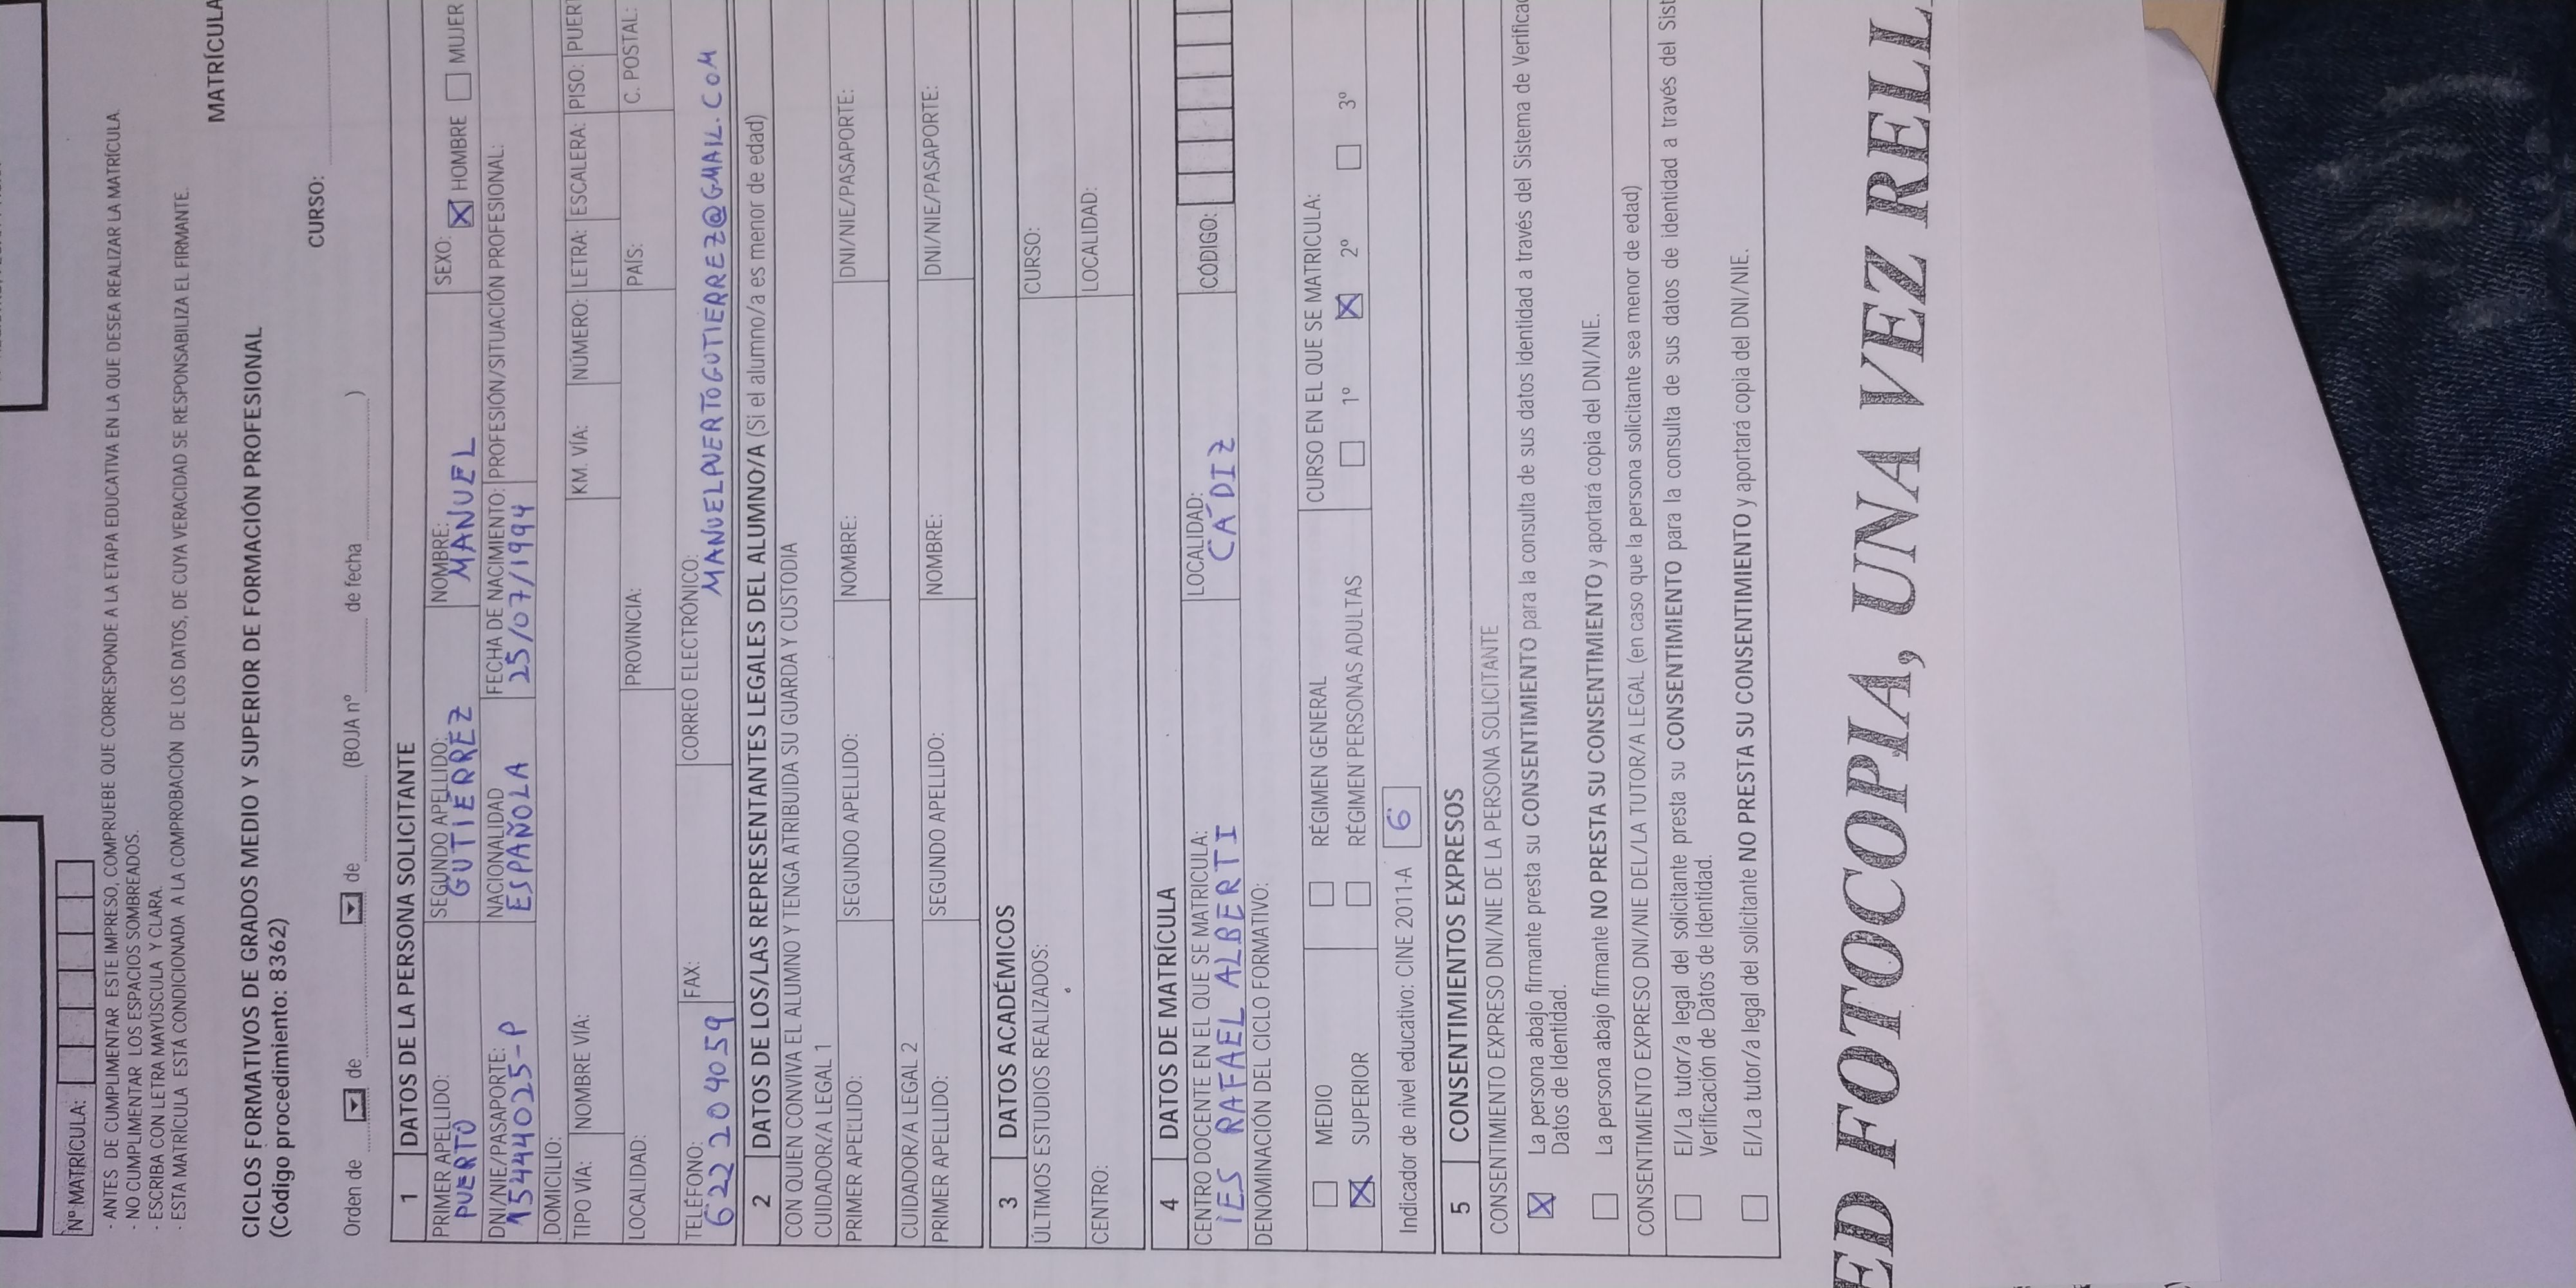 Nº MATRÍCULA:
- ANTES DE CUMPLIMENTAR ESTE IMPRESO, COMPRUEBE QUE CORRESPONDE A LA ETAPA EDUCATIVA EN LA QUE DESEA REALIZAR LA MATRÍCULA.
- NO CUMPLIMENTAR LOS ESPACIOS SOMBREADOS.
- ESCRIBA CON LETRA MAYÚSCULA Y CLARA.
- ESTA MATRÍCULA ESTÁ CONDICIONADA A LA COMPROBACIÓN DE LOS DATOS, DE CUYA VERACIDAD SE RESPONSABILIZA EL FIRMANTE.
MATRÍCULA
CICLOS FORMATIVOS DE GRADOS MEDIO Y SUPERIOR DE FORMACIÓN PROFESIONAL
(Código procedimiento: 8362)
CURSO:
Orden de de de (BOJA nº de fecha )
1 DATOS DE LA PERSONA SOLICITANTE
PRIMER APELLIDO: SEGUNDO APELLIDO: NOMBRE: SEXO: HOMBRE MUJER
PUERTO GUTIÉRREZ MANUEL
DNI/NIE/PASAPORTE: NACIONALIDAD FECHA DE NACIMIENTO: PROFESIÓN/SITUACIÓN PROFESIONAL:
15444025-P ESPAÑOLA 25/07/1994
DOMICILIO:
TIPO VÍA: NOMBRE VÍA: KM. VÍA: NÚMERO: LETRA: ESCALERA: PISO: PUERT
LOCALIDAD: PROVINCIA: PAÍS: C. POSTAL:
TELÉFONO: FAX: CORREO ELECTRÓNICO:
622204059 MANUELPUERTOGUTIERREZ@GMAIL.COM
2 DATOS DE LOS/LAS REPRESENTANTES LEGALES DEL ALUMNO/A (Si el alumno/a es menor de edad)
CON QUIEN CONVIVA EL ALUMNO Y TENGA ATRIBUIDA SU GUARDA Y CUSTODIA
CUIDADOR/A LEGAL 1
PRIMER APELLIDO: SEGUNDO APELLIDO: NOMBRE: DNI/NIE/PASAPORTE:
CUIDADOR/A LEGAL 2
PRIMER APELLIDO: SEGUNDO APELLIDO: NOMBRE: DNI/NIE/PASAPORTE:
3 DATOS ACADÉMICOS
ÚLTIMOS ESTUDIOS REALIZADOS: CURSO:
CENTRO: LOCALIDAD:
4 DATOS DE MATRÍCULA
CENTRO DOCENTE EN EL QUE SE MATRICULA: LOCALIDAD: CÓDIGO:
IES RAFAEL ALBERTI CÁDIZ
DENOMINACIÓN DEL CICLO FORMATIVO:
MEDIO RÉGIMEN GENERAL CURSO EN EL QUE SE MATRICULA:
SUPERIOR RÉGIMEN PERSONAS ADULTAS 1º 2º 3º
Indicador de nivel educativo: CINE 2011-A 6
5 CONSENTIMIENTOS EXPRESOS
CONSENTIMIENTO EXPRESO DNI/NIE DE LA PERSONA SOLICITANTE
La persona abajo firmante presta su CONSENTIMIENTO para la consulta de sus datos identidad a través del Sistema de Verificac
Datos de Identidad.
La persona abajo firmante NO PRESTA SU CONSENTIMIENTO y aportará copia del DNI/NIE.
CONSENTIMIENTO EXPRESO DNI/NIE DEL/LA TUTOR/A LEGAL (en caso que la persona solicitante sea menor de edad)
El/La tutor/a legal del solicitante presta su CONSENTIMIENTO para la consulta de sus datos de identidad a través del Sist
Verificación de Datos de Identidad.
El/La tutor/a legal del solicitante NO PRESTA SU CONSENTIMIENTO y aportará copia del DNI/NIE.
ED FOTOCOPIA, UNA VEZ RELL